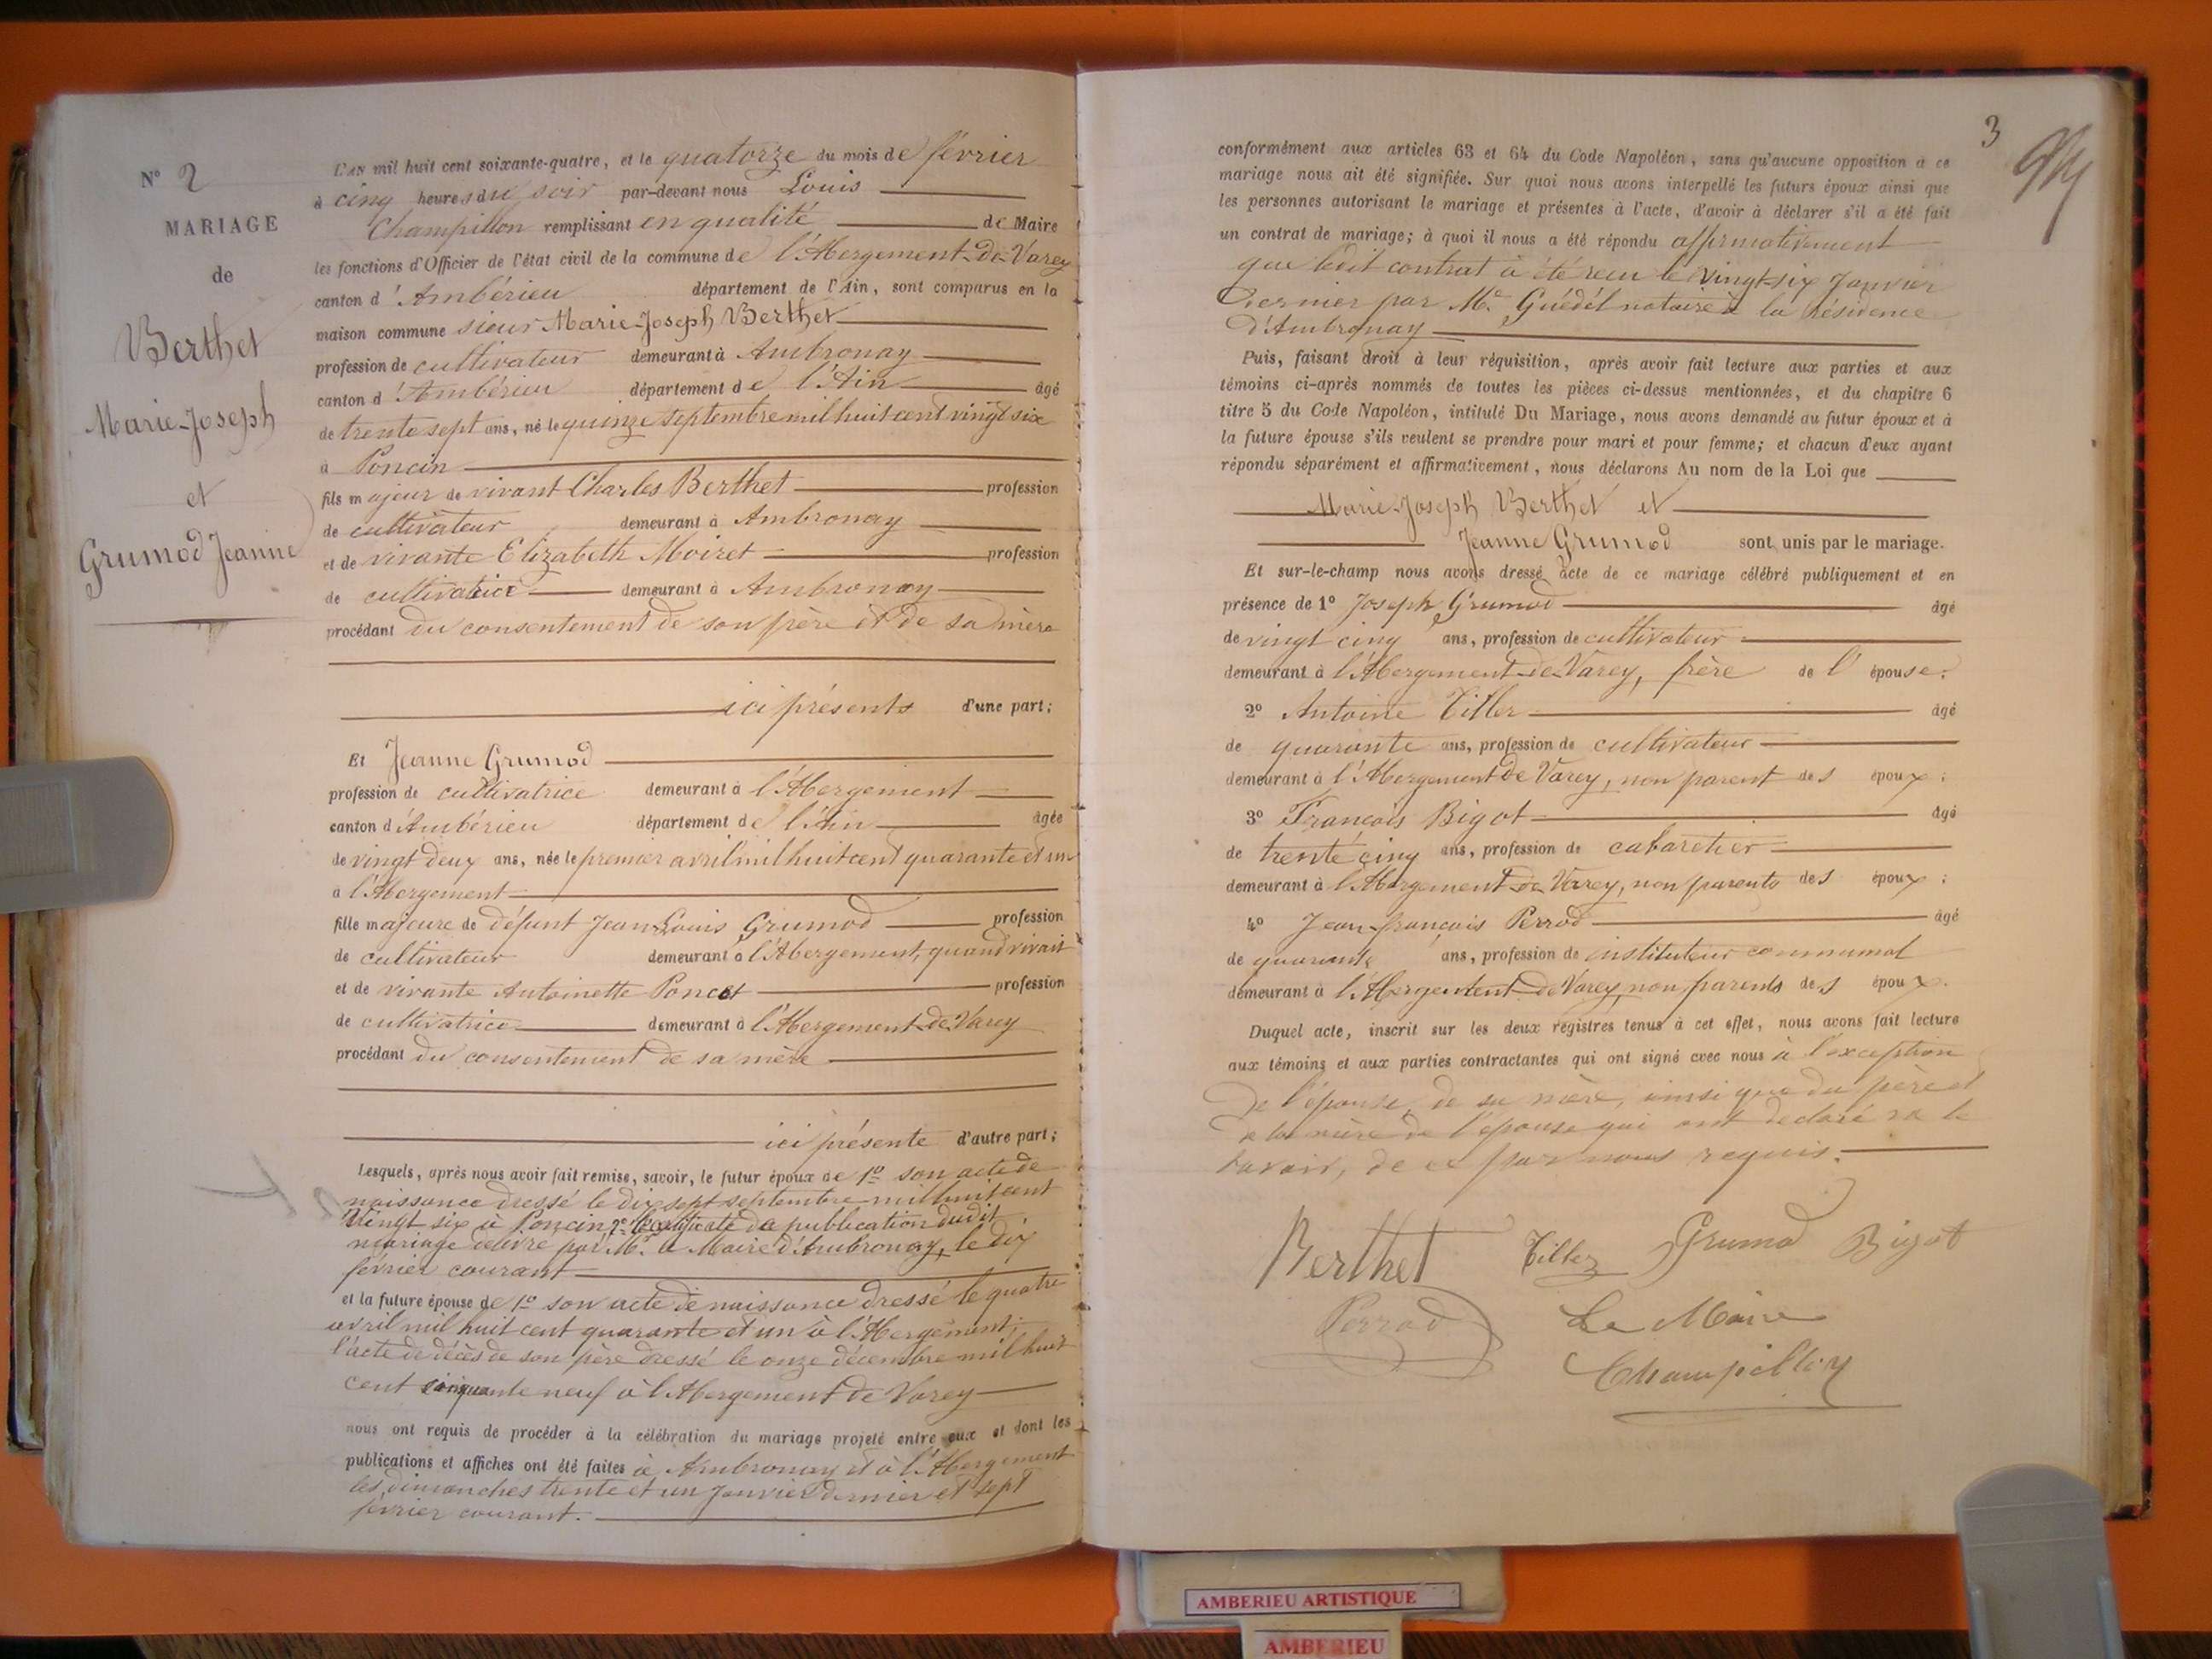 N° 2
MARIAGE
de
Berthet
Marie-Joseph
et
Grumod Jeanne
L'AN mil huit cent soixante-quatre, et le quatorze du mois de février
à cinq heures du soir par-devant nous Louis
Champillon remplissant en qualité de Maire
les fonctions d'Officier de l'état civil de la commune de l'Abergement-de-Varey
canton d'Ambérieu département de l'Ain, sont comparus en la
maison commune sieur Marie-Joseph Berthet
profession de cultivateur demeurant à Ambronay
canton d'Ambérieu département de l'Ain âgé
de trente sept ans, né le quinze septembre mil huit cent vingt six
à Poncin
fils majeur de vivant Charles Berthet profession
de cultivateur demeurant à Ambronay
et de vivante Elizabeth Moiret profession
de cultivatrice demeurant à Ambronay
procédant du consentement de son père et de sa mère
ici présents d'une part;
Et Jeanne Grumod
profession de cultivatrice demeurant à l'Abergement
canton d'Ambérieu département de l'Ain âgée
de vingt deux ans, née le premier avril mil huit cent quarante et un
à l'Abergement
fille majeure de défunt Jean-Louis Grumod profession
de cultivateur demeurant à l'Abergement, quand vivait
et de vivante Antoinette Poncet profession
de cultivatrice demeurant à l'Abergement-de-Varey
procédant du consentement de sa mère
ici présente d'autre part;
Lesquels, après nous avoir fait remise, savoir, le futur époux de 1° son acte de
naissance dressé le dix sept septembre mil huit cent
vingt six à Poncin 2° le certificat de publication dudit
mariage délivré par Mr. le Maire d'Ambronay, le dix
février courant
et la future épouse de 1° son acte de naissance dressé le quatre
avril mil huit cent quarante et un à l'Abergement;
l'acte de décès de son père dressé le onze décembre mil huit
cent cinquante neuf à l'Abergement de Varey
nous ont requis de procéder à la célébration du mariage projeté entre eux et dont les
publications et affiches ont été faites à Ambronay et à l'Abergement
les dimanches trente et un Janvier dernier et sept
février courant.
3
conformément aux articles 63 et 64 du Code Napoléon, sans qu'aucune opposition à ce
mariage nous ait été signifiée. Sur quoi nous avons interpellé les futurs époux ainsi que
les personnes autorisant le mariage et présentes à l'acte, d'avoir à déclarer s'il a été fait
un contrat de mariage; à quoi il nous a été répondu affirmativement
que ledit contrat à été reçu le vingt-six Janvier
dernier par Me. Guédél notaire à la résidence
d'Ambronay
Puis, faisant droit à leur réquisition, après avoir fait lecture aux parties et aux
témoins ci-après nommés de toutes les pièces ci-dessus mentionnées, et du chapitre 6
titre 5 du Code Napoléon, intitulé Du Mariage, nous avons demandé au futur époux et à
la future épouse s'ils veulent se prendre pour mari et pour femme; et chacun d'eux ayant
répondu séparément et affirmativement, nous déclarons Au nom de la Loi que
Marie-Joseph Berthet et
Jeanne Grumod sont unis par le mariage.
Et sur-le-champ nous avons dressé acte de ce mariage célébré publiquement et en
présence de 1° Joseph Grumod âgé
de vingt cinq ans, profession de cultivateur
demeurant à l'Abergement-de-Varey, frère de l'épouse.
2° Antoine Tiller âgé
de quarante ans, profession de cultivateur
demeurant à l'Abergement de Varey, non parent des époux;
3° Francois Bigot âgé
de trente cinq ans, profession de cabaretier
demeurant à l'Abergement-de Varey, non parents des époux;
4° Jean-françois Perrod âgé
de quarante ans, profession de instituteur communal
demeurant à l'Abergement-de Varey, non parents des époux.
Duquel acte, inscrit sur les deux registres tenus à cet effet, nous avons fait lecture
aux témoins et aux parties contractantes qui ont signé avec nous à l'exception
de l'épouse, de sa mère, ainsi que du père et
de la mère de l'épouse qui ont declaré ne le
savoir, de ce par nous requis.
Berthet Tiller Grumod Bigot
Perrod Le Maire
Champillon
AMBERIEU ARTISTIQUE
AMBERIEU